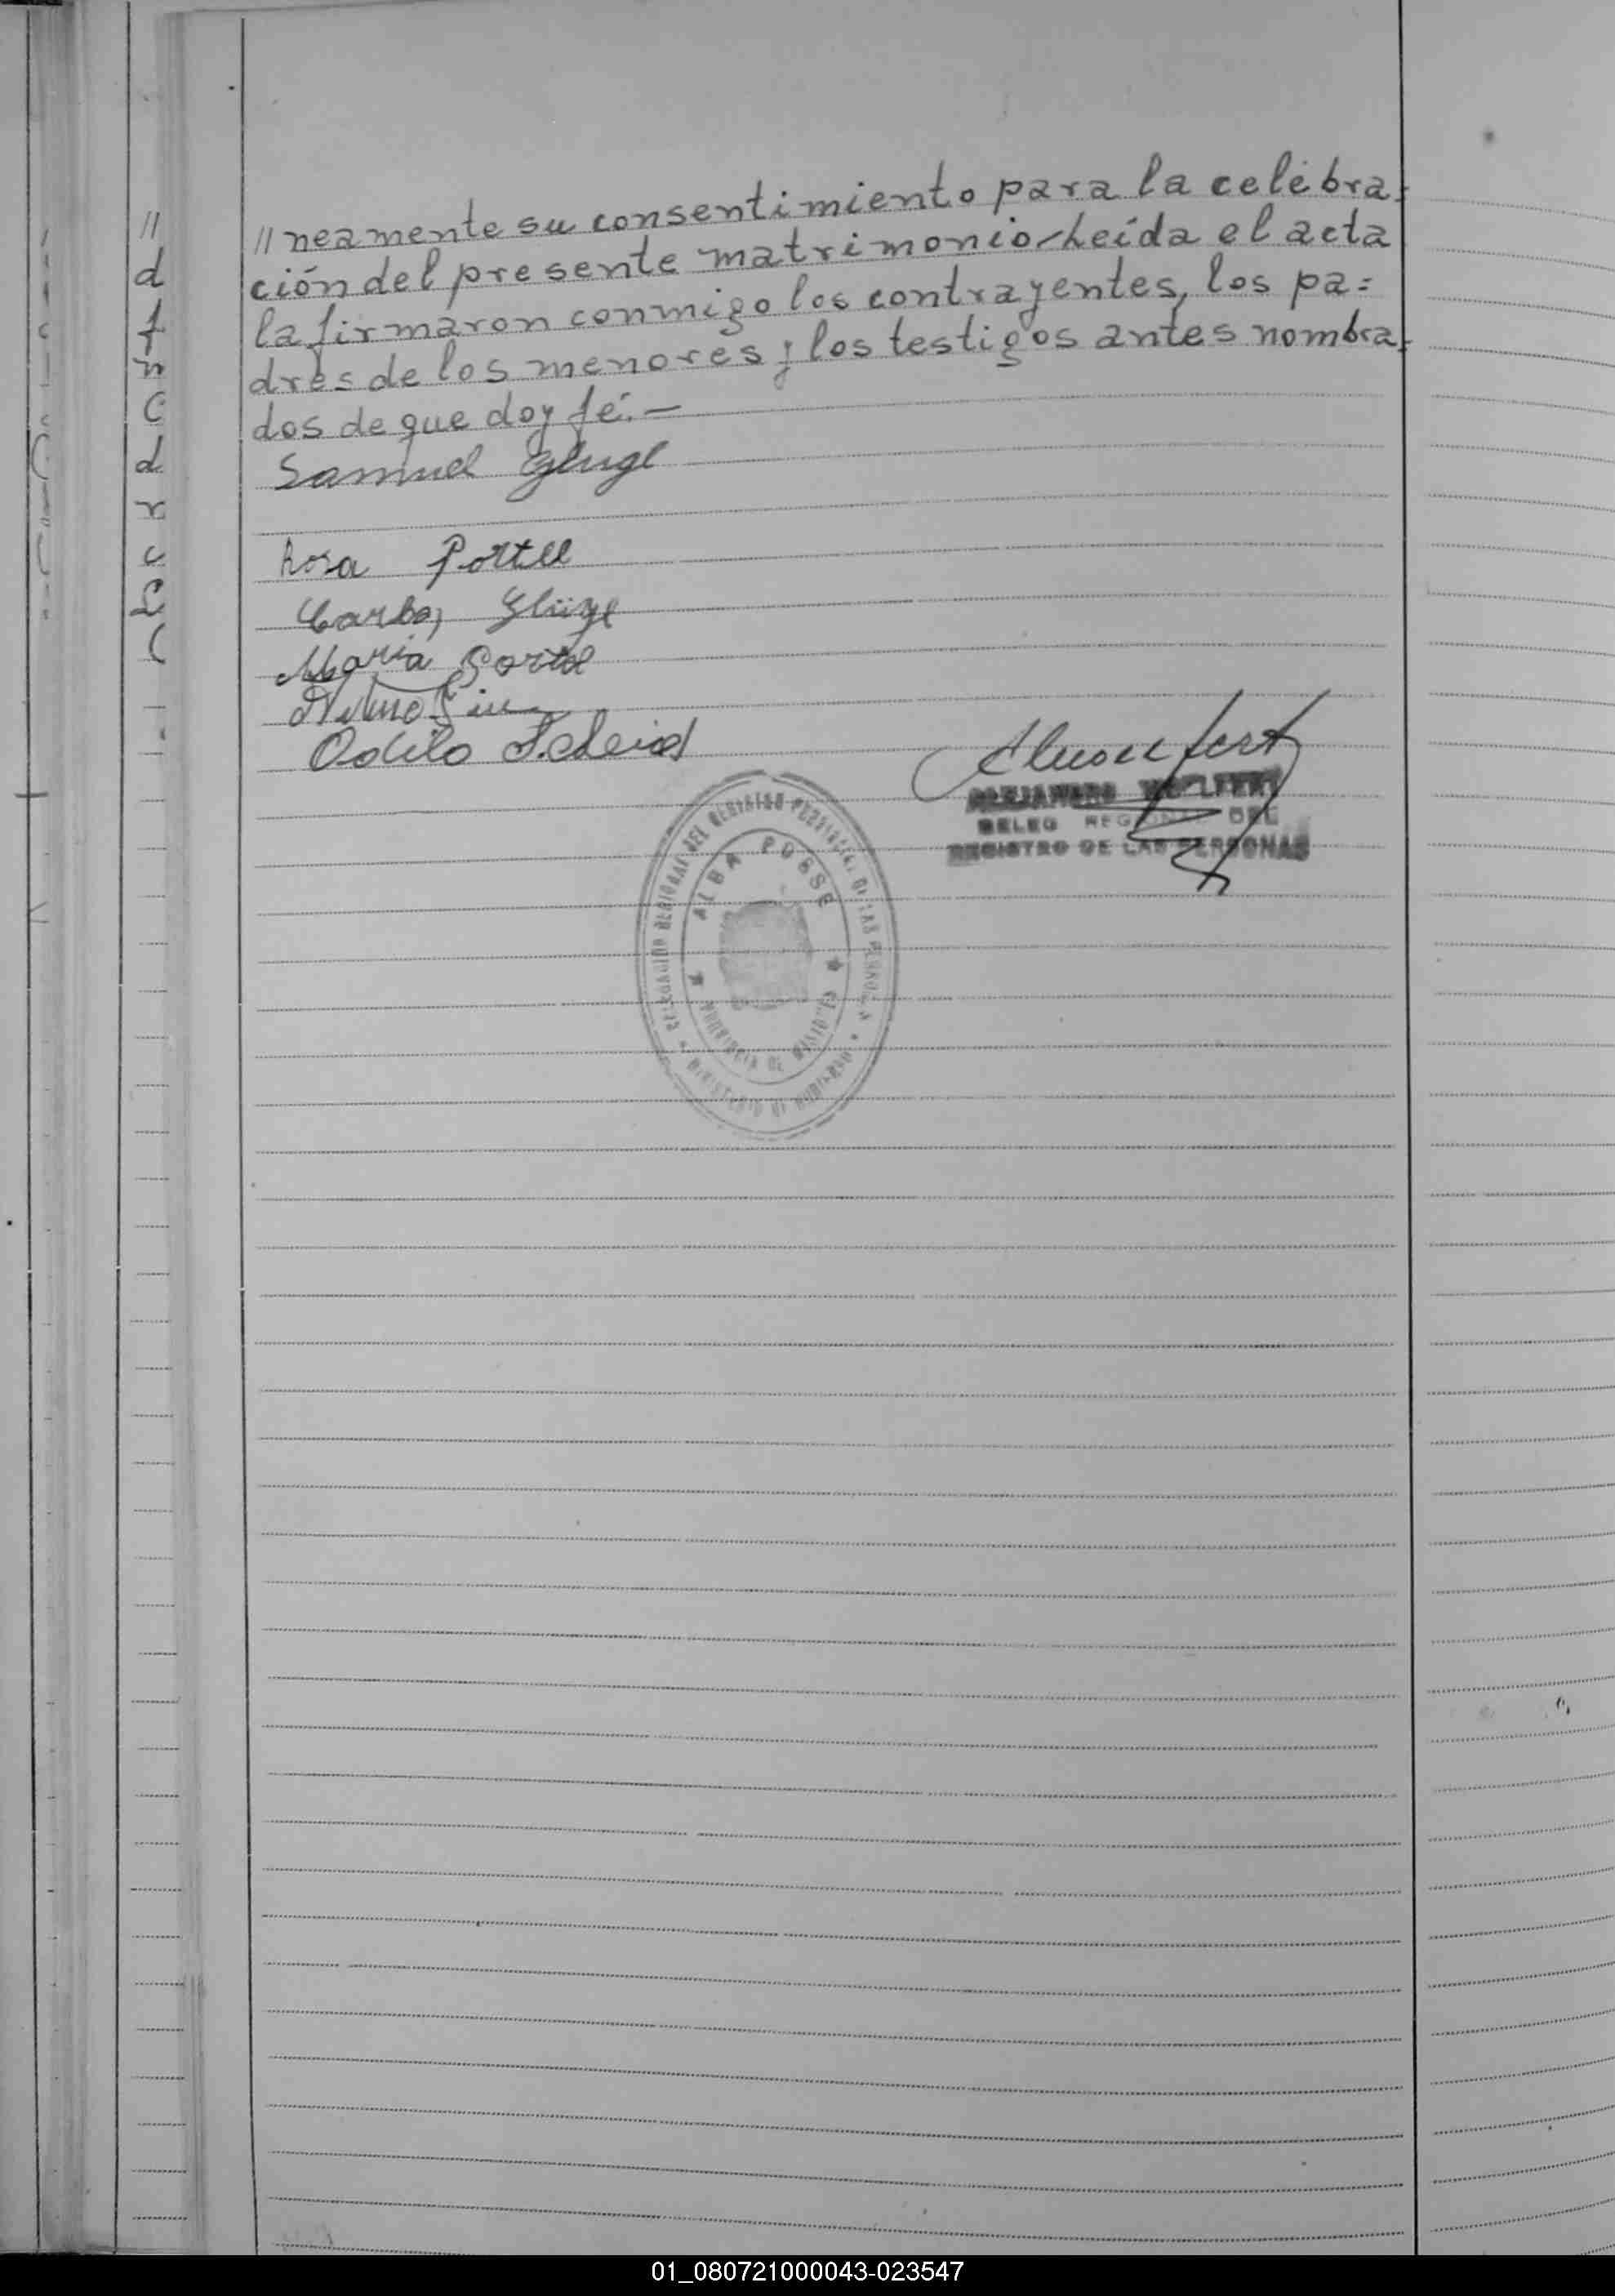 // neamente su consentimiento para la celebra=
ción del presente matrimonio. Leída el acta
la firmaron conmigo los contrayentes, los pa=
dres de los menores y los testigos antes nombra=
dos de que doy fé.—
Samuel Gluge
Rosa Portel
Carlos Glüge
Maria Portel
Odilo Scheid
ALEJANDRO
DELEG REGIONAL DEL
REGISTRO DE LAS PERSONAS
DELEGACION REGIONAL DEL REGISTRO PROVINCIAL DE LAS PERSONAS
ALBA POSSE
PROVINCIA DE MISIONES
MINISTERIO DE GOBIERNO
//
d
f
n
C
d
r
c
L
(
01_080721000043-023547